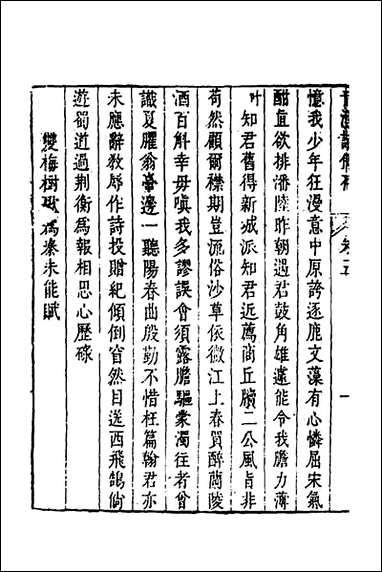 憶我少年狂漫意中原誇逐鹿文藻有心憐屈宋氣
酣直欲排潘陸昨朝遇君鼓角雄遽能令我膽力薄
叶知君舊得新城派知君近薦商丘牘二公風旨非
苟然顧爾襟期豈流俗沙草依微江上春質醉蘭陵
酒百斛幸毋嗔我多謬誤會須露膽驅蒙濁往者曾
識夏臞翁臺邊一聽陽春曲殷勤不惜枉篇翰君亦
未應辭敎辱作詩投贈紀傾倒窅然目送西飛鵠倘
遊蜀道過荆衡爲報相思心歷碌
雙梅樹歌爲秦未能賦